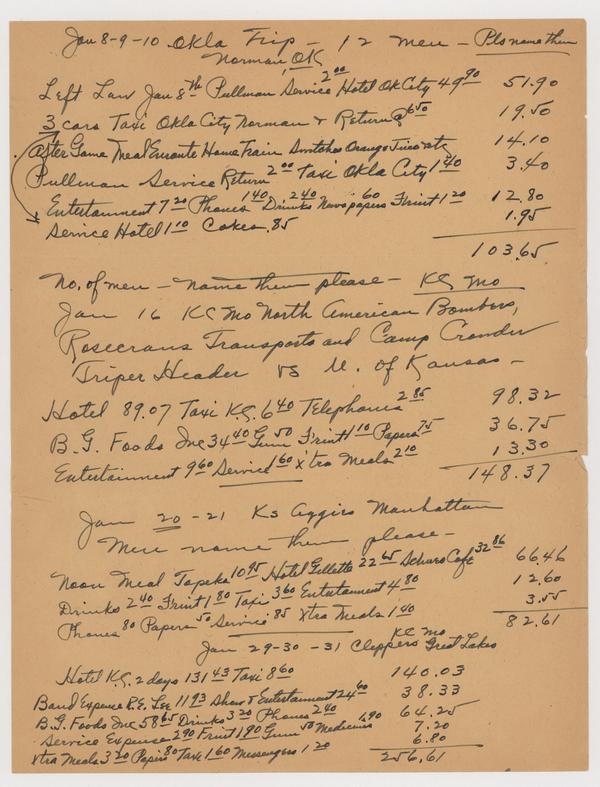 Jan 8-9-10 Okla Trip - 12 men - Pls name them
Norman, OK
Left Law Jan 8th Pullman Service 2.00 Hotel Ok City 49.90 51.90
3 cars Taxi Okla City Norman & Return @ 6.50 19.50
After Game Meal Enroute Home Train Sandwiches Orange Juice etc 14.10
Pullman Service Return 2.00 Taxi Okla City 1.40 3.40
Entertainment 7.20 Phones 1.40 Drinks 2.40 Newspapers .60 Fruit 1.20 12.80
Service Hotel 1.10 Cokes .85 1.95
103.65
No. of men - name them please - KC Mo
Jan 16 KC Mo North American Bombers,
Rosecrans Transports and Camp Crowder
Triper Header vs U. of Kansas -
Hotel 89.07 Taxi KC. 6.40 Telephones 2.85 98.32
B.G. Foods Inc 34.40 Gum .50 Fruit 1.10 Papers .75 36.75
Entertainment 9.60 Service 1.60 Xtra Meals 2.10 13.30
148.37
Jan 20-21 Ks Aggies Manhattan
Men name them please -
Noon Meal Topeka 10.95 Hotel Gillette 22.65 Cafe 32.86 66.46
Drinks 2.40 Fruit 1.80 Taxi 3.60 Entertainment 4.80 12.60
Phones .80 Papers .50 Service .85 Xtra Meals 1.40 3.55
82.61
KC Mo
Jan 29-30-31 Clippers Great Lakes
Hotel KC. 2 days 131.43 Taxi 8.60 140.03
Band Expense R.E. Lee 11.93 Show & Entertainment 24.60 38.33
B.G. Foods Inc 58.65 Drinks 3.20 Phones 2.40 64.25
Service Expense 2.90 Fruit 1.90 Gum .50 Medicines 1.90 7.20
Xtra Meals 3.20 Papers .80 Taxi 1.60 Messengers 1.20 6.80
256.61